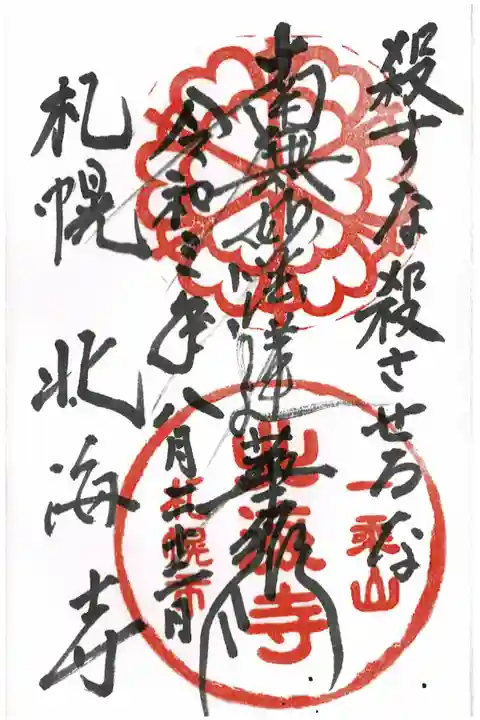 殺すな殺させるな
南無妙法蓮華経
令和三年八月十二日
札幌 北海寺
一乗山
北海寺
札幌市